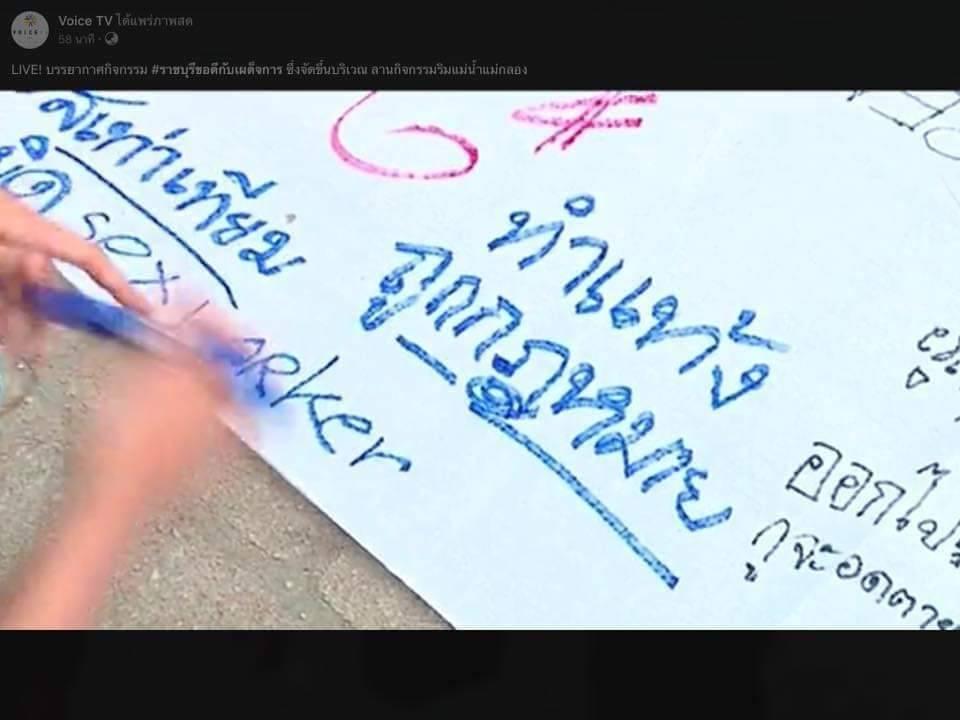 Voice TV ได้แพร่ภาพสด
58 นาที
LIVE! บรรยากาศกิจกรรม #ราชบุรีขอตีกับเผด็จการ ซึ่งจัดขึ้นบริเวณ ลานกิจกรรมริมแม่น้ำแม่กลอง
เท่าเทียม
sex worker
ทำแท้ง
ถูกกฎหมาย
ออกไป
กูจะอดตาย